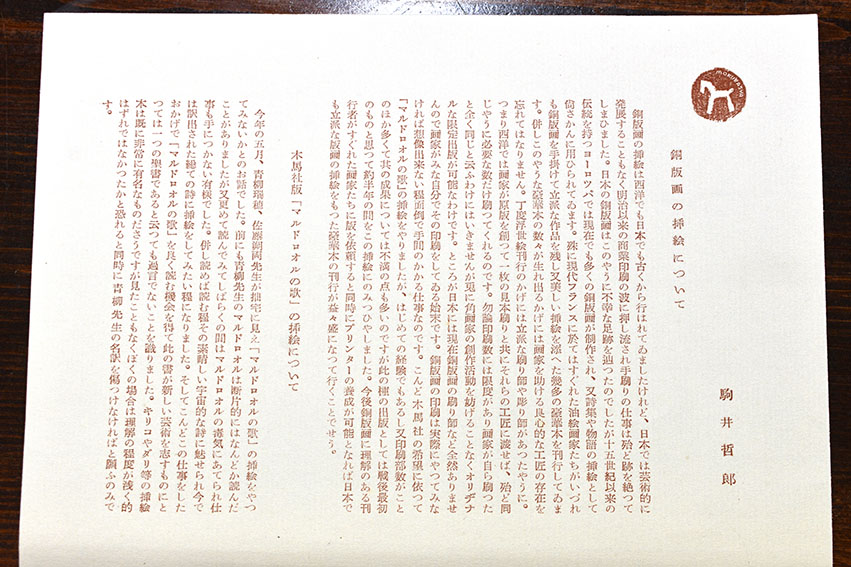 MOKUBASHA
銅版画の挿絵について
駒井哲郎
銅版画の挿絵は西洋でも日本でも古くから行はれてゐましたけれど、日本では芸術的に
発展することもなく明治以来の商業印刷の波に押し流され手刷りの仕事は殆ど跡を絶つて
しまひました。日本の銅版画はこのやうに不幸な足跡を辿つたのでしたが十五世紀以来の
伝統を持つヨーロツパでは現在でも多くの銅版画が制作され、又詩集や物語の挿絵として
尚さかんに用ひられてゐます。殊に現代フランスに於てはすぐれた油絵画家たちがいづれ
も銅版画を手掛けて立派な作品を残し又美しい挿絵を添へた幾多の豪華本を刊行してゐま
す。併しこのやうな豪華本の数々が生れ出るかげには画家を助ける良心的な工匠の存在を
忘れてはなりません。丁度浮世絵刊行のかげには立派な刷り師や彫り師があつたやうに。
つまり西洋では画家が原版を創つて一枚の見本刷りと共にそれらの工匠に渡せば、殆ど同
じやうに必要な数だけ刷つてくれるのです。勿論印刷数には限度があり画家が自ら刷つた
と全く同じと云ふわけにはいきませんが兎に角画家の創作活動を妨げることなくオリヂナ
ルな限定出版が可能なわけです。ところが日本には現在銅版画の刷り師など全然ありませ
んので画家がみな自分でその印刷をしてゐる始末です。銅版画の印刷は実際にやつてみな
ければ想像出来ない程面倒で手間のかかる仕事なのです。こんど木馬社の希望に依つて
「マルドロオルの歌」の挿絵をやりましたが、はじめての経験でもあるし又印刷部数がこと
のほか多くて其の成果については不満の点も多いのですが此の種の出版としては戦後最初
のものと思つて約半年の間をこの挿絵にのみつひやしました。今後銅版画に理解のある刊
行者がすぐれた画家たちに版を依頼すると同時にプリンターの養成が可能となれば日本で
も立派な版画の挿絵をもつた豪華本の刊行が益々盛になつて行くことでせう。
木馬社版「マルドロオルの歌」の挿絵について
今年の五月、青柳瑞穂、佐藤朔両先生が拙宅に見え「マルドロオルの歌」の挿絵をやつ
てみないかとのお話でした。前にも青柳先生のマルドロオルは断片的にはなんどか読んだ
ことがありましたが又更めて読んでみてしばらくの間はマルドロオルの毒気にあてられ仕
事も手につかない有様でした。併し読めば読む程その素晴しい宇宙的な詩に魅せられ今で
は訳出された総ての詩に挿絵をしてみたい程になりました。そしてこんどこの仕事をした
おかげで「マルドロオルの歌」を良く読む機会を得て此の書が新しい芸術を志すものにと
つては一つの聖書であると云つても過言でないことを識りました。キリコやダリ等の挿絵
本は既に非常に有名なものださうですが見たこともなくぼくの場合は理解の程度が浅く的
はずれではなかつたかと恐れると同時に青柳先生の名訳を傷つけなければと願ふのみで
す。